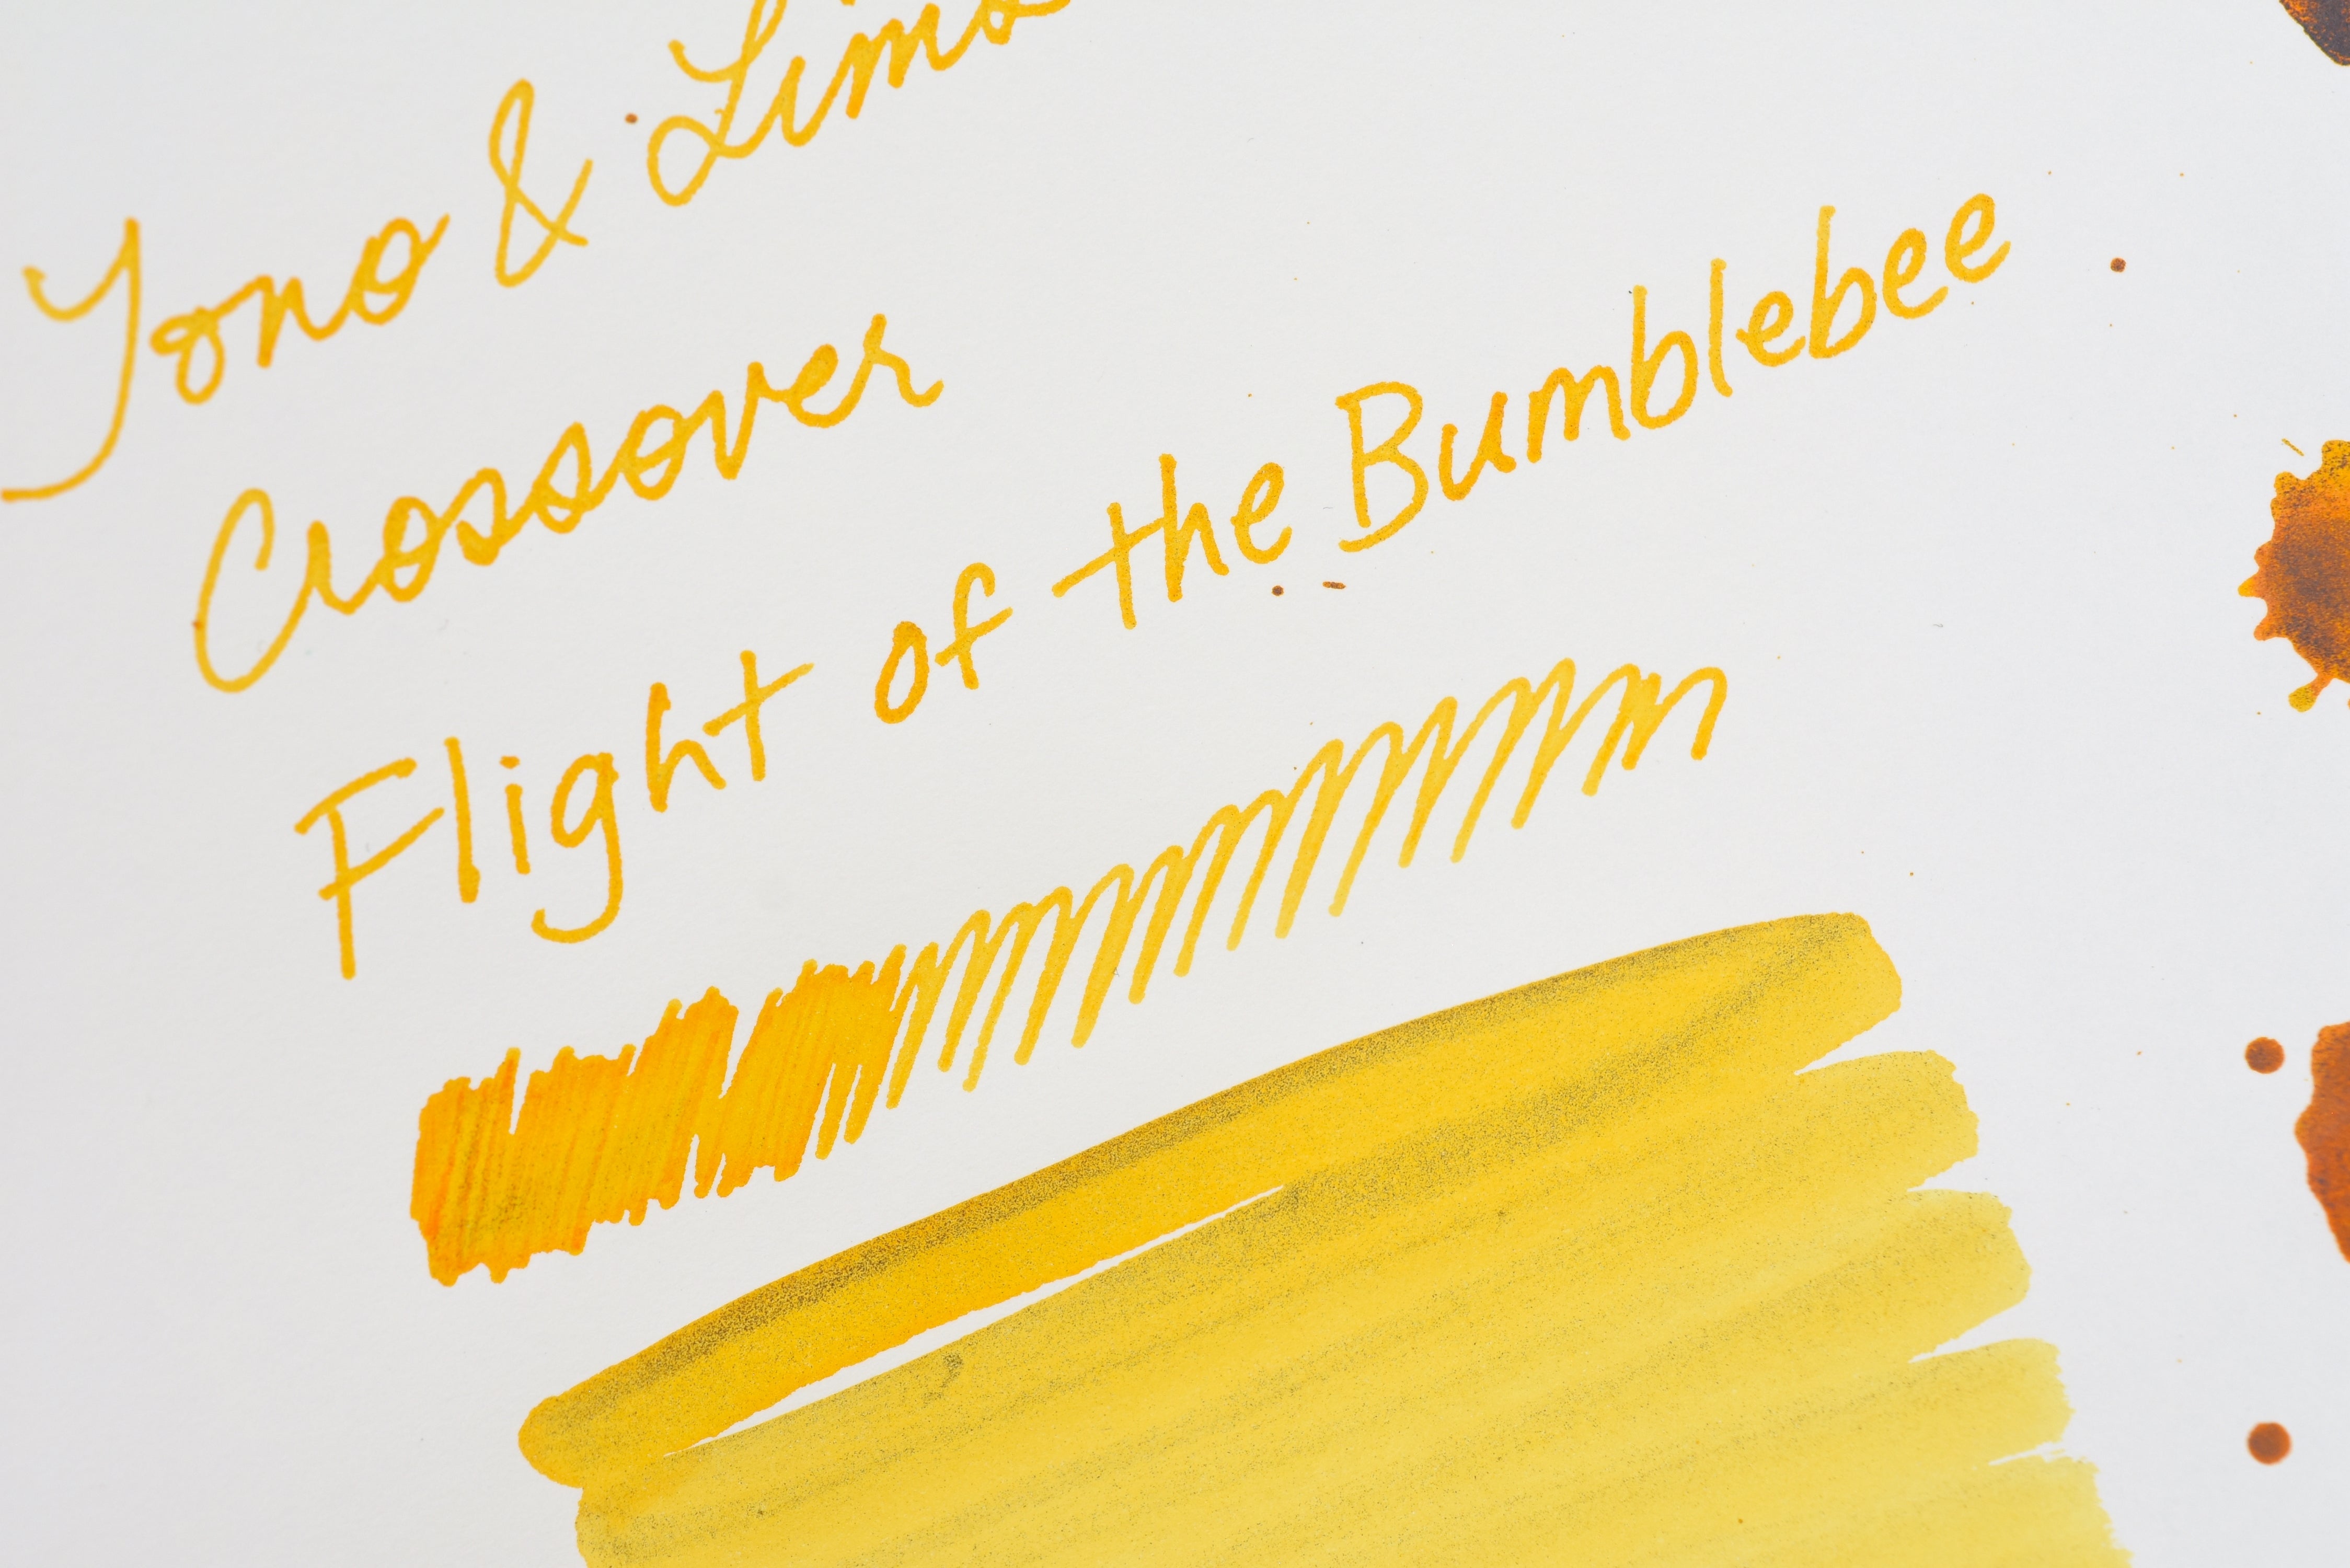 Yono &
Crossover
Flight of the Bumblebee